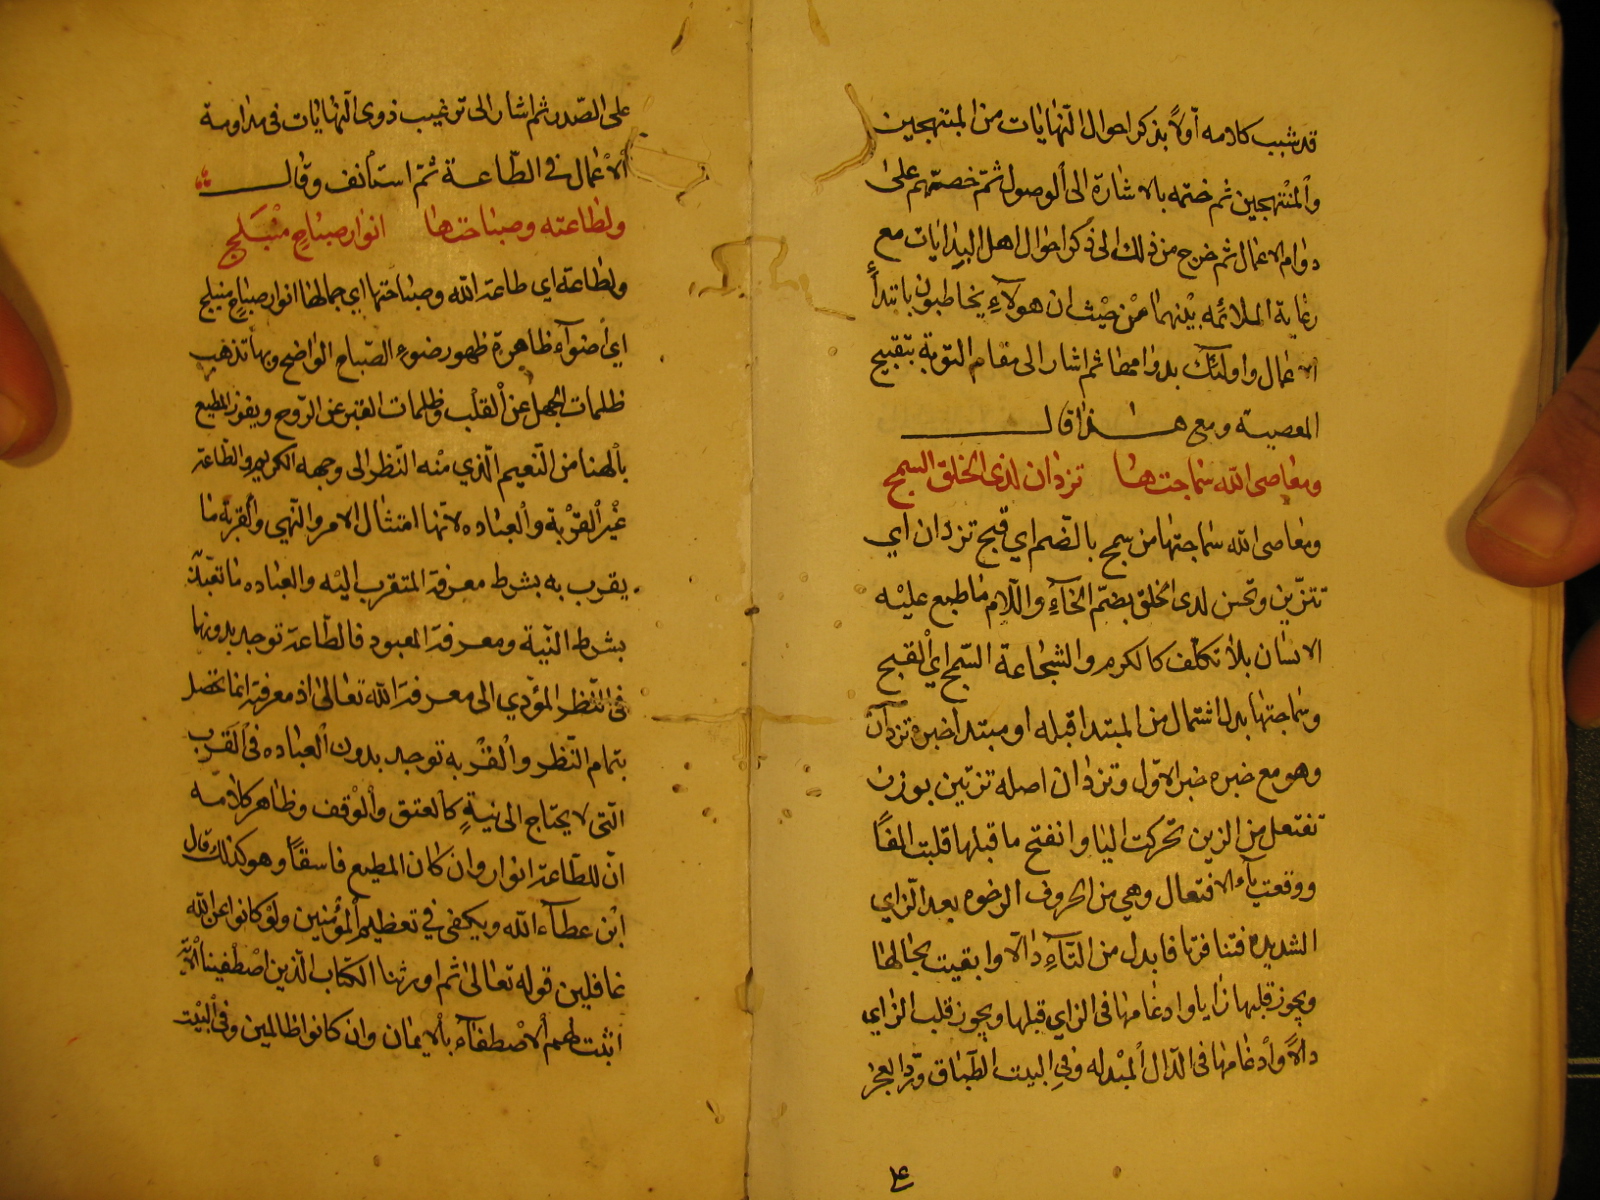 قد شبب كلامه أولاً بذكر احوال النهايات من المبتهجين
والمنتهجين ثم ختمه بالاشارة الى الوصول ثم خصمهم على
دوام الاعمال ثم خرج من ذلك الى ذكر احوال اهل البدايات مع
رعاية الملائمه بينهما من حيث ان هولآءِ يخاطبون بابتدأ
الاعمال واولئك بدوامها ثم اشار الى مقام التوبة بتقبيح
المعصية ومع هذا قال
ومعاصى الله سماجتها تزدان لذى الخلق السمج
ومعاصى الله سماجتها من سمج بالضم اي قبح تزدان اي
تتزين وتحسن لدى الخلق بضم الخآءِ واللام ما طبع عليه
الانسان بلا تكلف كالكرم والشجاعة السمج اي القبيح
وسماجتها بدل اشتمال من المبتدا قبله او مبتدا خبره تزدان
وهو مع خبره خبر الاول وتزدان اصله تزتين بوزن
تفتعل من الزين تحركت اليا وانفتح ما قبلها قلبت الفاً
ووقعت تآء الافتعال وهي من الحروف الرخوه بعد الزاي
الشديده فتنافرتا فابدل من التآءِ دالا وابقيت بحالها
ويجوز قلبها زايا وادغامها فى الزاي قبلها ويجوز قلب الزاي
دالاً وادغامها فى الدال المبدله وفي البيت الطباق ورد العجز
ع
على الصدر ثم اشار الى ترغيب ذوى النهايات فى مداومة
الاعمال في الطاعة ثم استأنف وقال
ولطاعته وصباحتها انوار صباحٍ منبلج
ولطاعة اي طاعة الله وصباحتها اي جمالها انوار صباحٍ منبلج
اي اضوآء ظاهرة ظهور ضوءِ الصباح الواضح وبها تذهب
ظلمات الجهل عن القلب وظلمات القبر عن الروح ويفوز المطيع
بالهنا من النعيم الذي منه النظر الى وجهه الكريم والطاعة
غير القربة والعباده لانها امتثال الامر والنهي والقربة ما
يقرب به بشرط معرفة المتقرب اليه والعباده ما تعبد
بشرط النية ومعرفة المعبود فالطاعة توجد بدونها
فى النظر المؤدي الى معرفة الله تعالى اذ معرفته انما تحصل
بتمام النظر والقربه توجد بدون العباده فى القرب
التى لا يحتاج الى نيةٍ كالعتق والوقف وظاهر كلامه
ان للطاعة انوار وان كان المطيع فاسقاً وهو كذلك قال
ابن عطآء الله ويكفى في تعظيم المؤمنين ولو كانوا عن الله
غافلين قوله تعالى ثم اورثنا الكتاب الذين اصطفينا الآية
اثبت لهم الاصطفآء بالايمان وان كانوا ظالمين وفى البيت